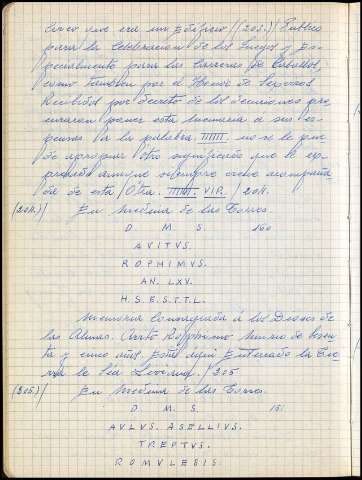 Circo que era un Edificio /(203.)/ Publico
para la Celebracion de los Juegos y Es-
pecialmente para las Carreras de Caballos,
como tambien por el Honor de
Recibidos por decreto de los decuriones pro-
curaron poner esta memoria a sus es-
pensas a la palabra IIIIII no se le pue-
de apropiar otro significado que el es-
presado aunque siempre creo acompaña-
da de esta Otra. IIIIII. VIR. / 204.
(204.)/ En Medina de las Torres.
D. M. S. 150
AVITVS.
ROPHIMVS.
AN. LXV.
H. S. E. S. T. T. L.
Memoria Consagrada à los Dioses de
las Almas. Avito Rophimo Murio de Sesen-
ta y cinco años. Està aqui Enterrado la Tie-
rra le Sea Leviana. / 205
(205.)/ En Medina de las Torres.
D. M. S. 151
AVLVS. ASELLIVS.
TREPTVS.
ROMVLESIS.